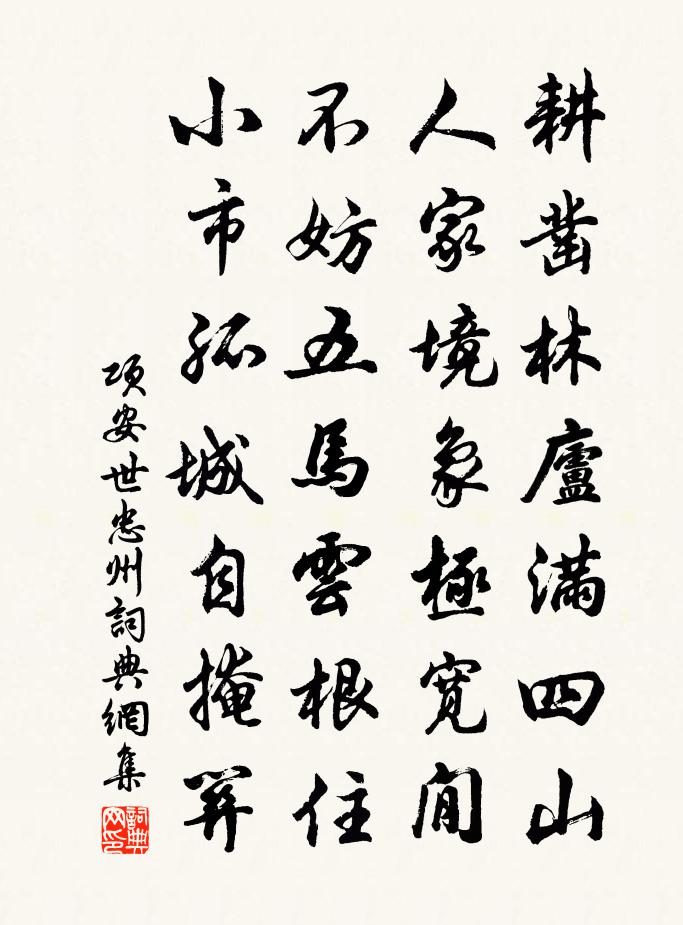 耕鑿林廬滿四山
人家境象極寬閒
不妨五馬雲根住
小市孤城自掩關
項安世忠州詞典網集
詞典网印